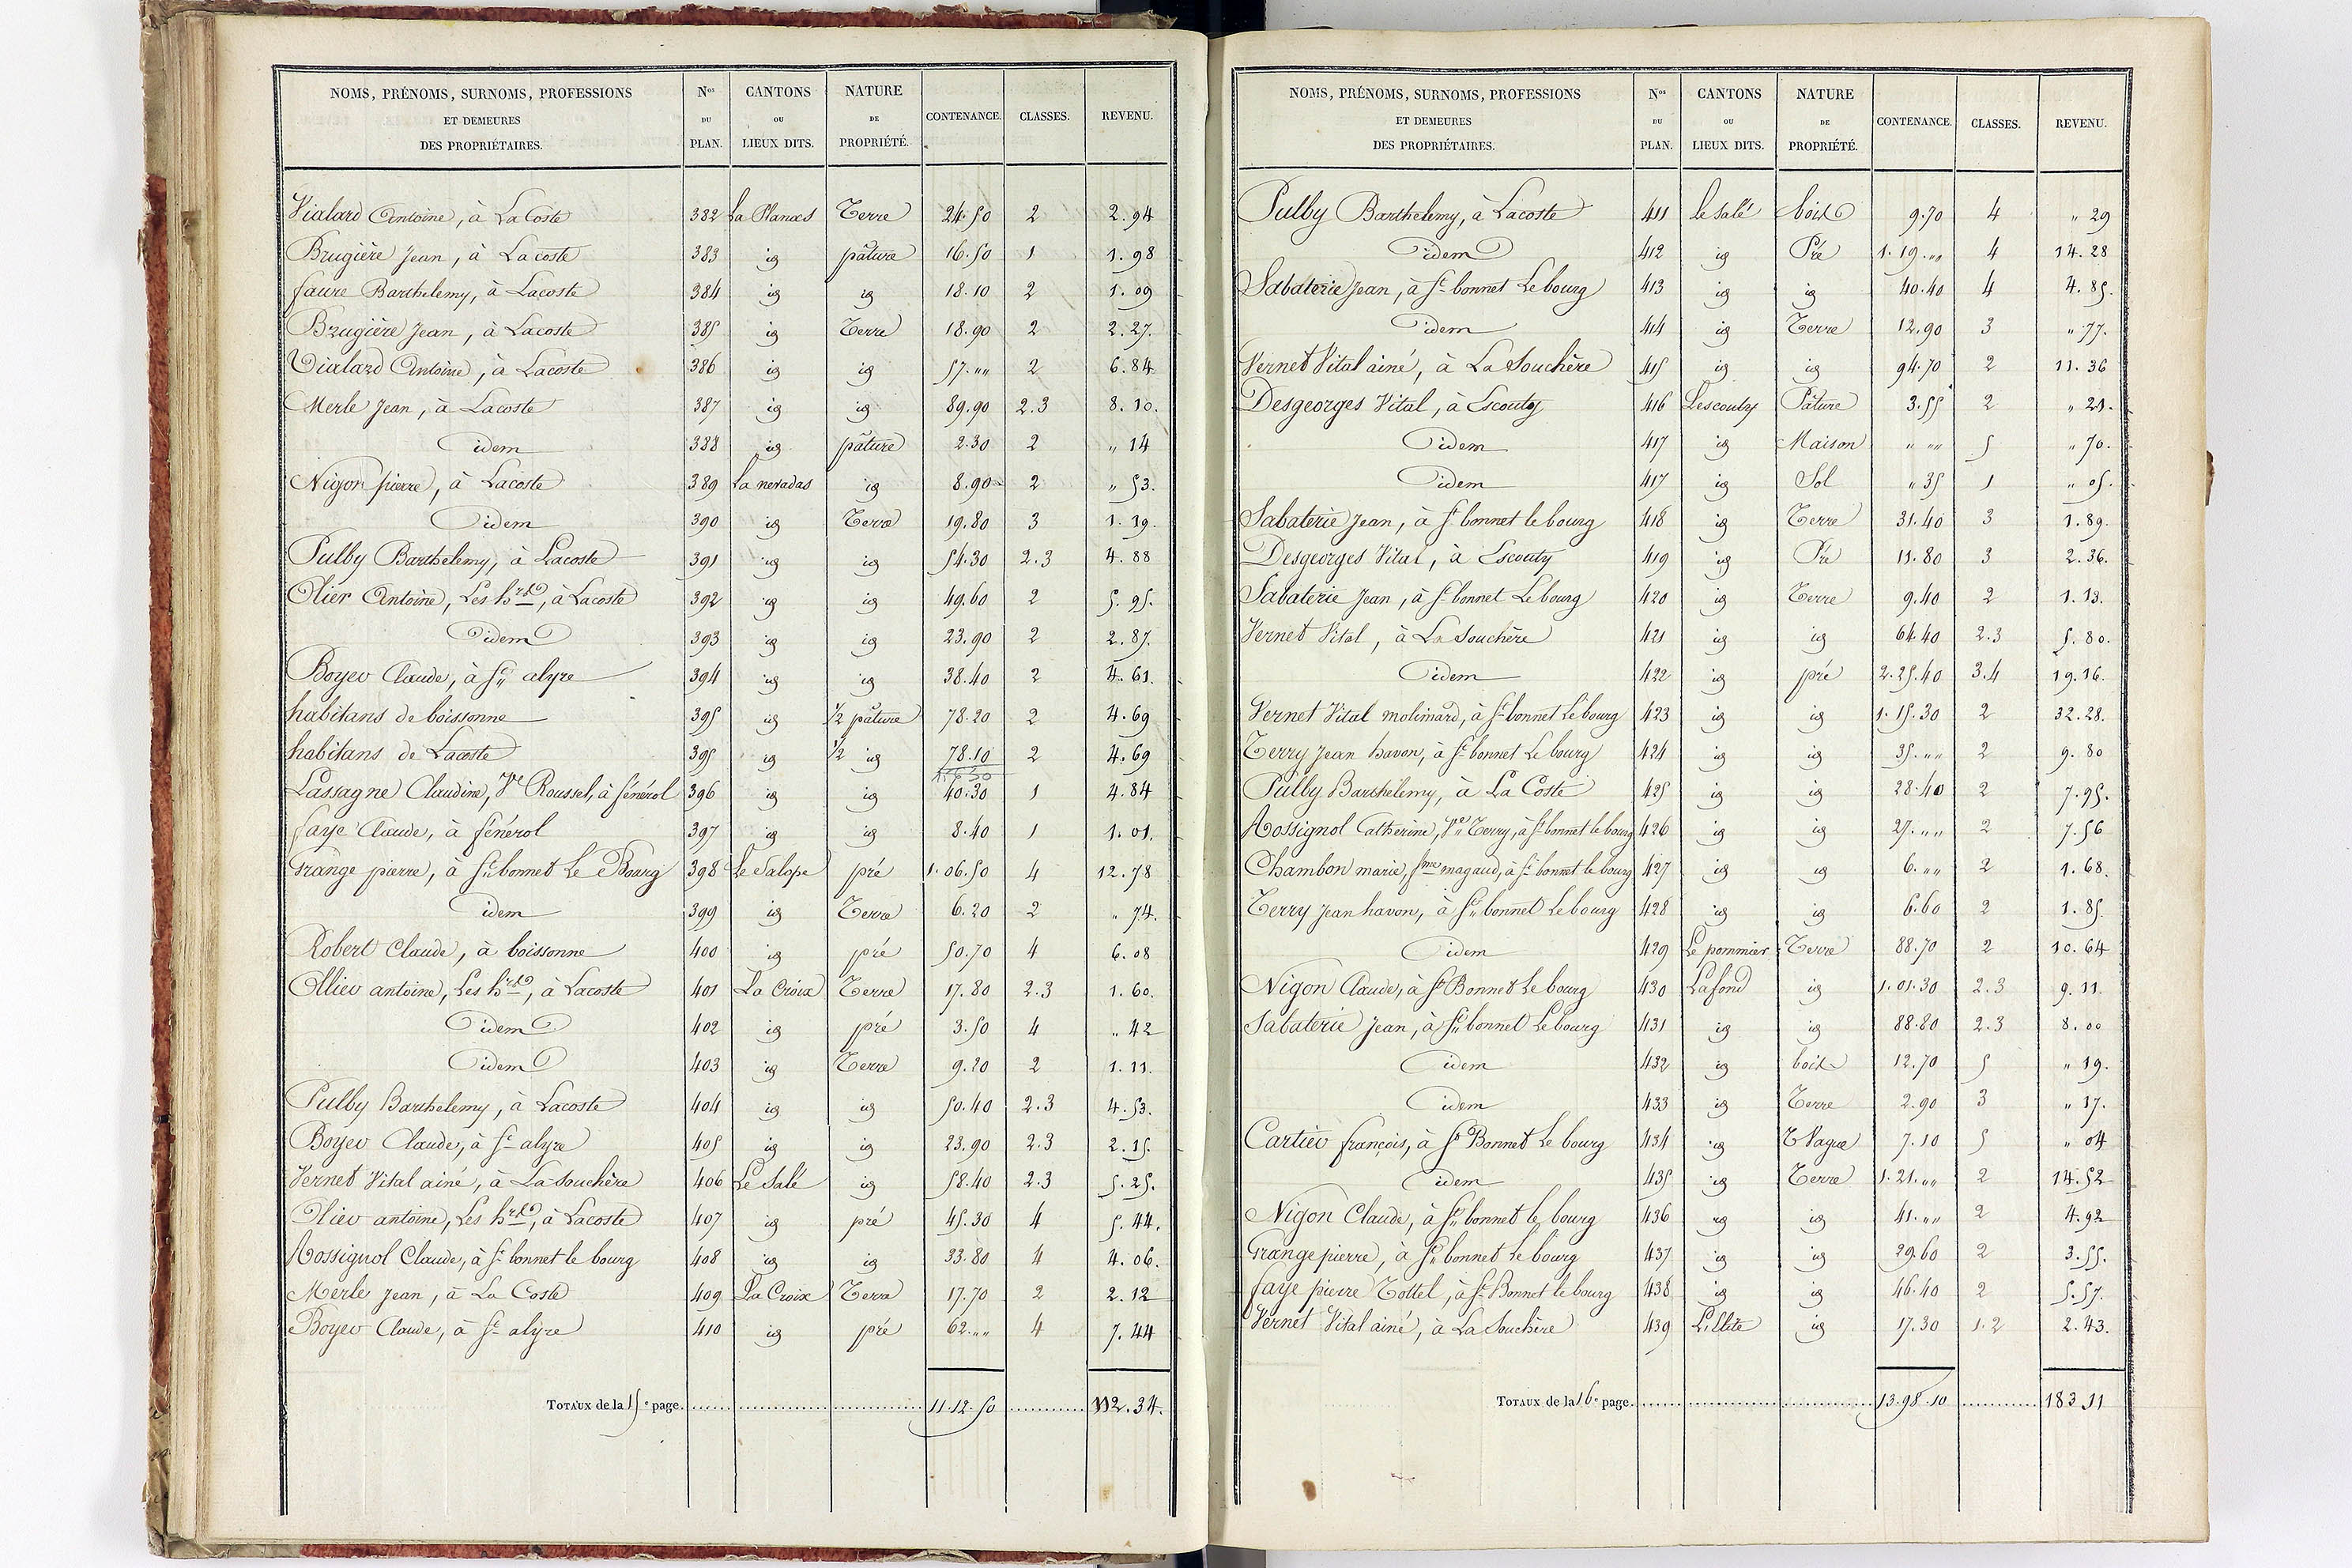 NOMS, PRÉNOMS, SURNOMS, PROFESSIONS ET DEMEURES DES PROPRIÉTAIRES. Nos DU PLAN. CANTONS OU LIEUX DITS. NATURE DE PROPRIÉTÉ. CONTENANCE. CLASSES. REVENU.
Vialard Antoine, à La Coste 382 La Planas Terre 24.50 2 2.94
Brugière Jean, à Lacoste 383 id pâture 16.50 1 1.98
faure Barthelemy, à Lacoste 384 id id 18.10 2 1.09
Brugière Jean, à Lacoste 385 id Terre 18.90 2 2.27.
Vialard Antoine, à Lacoste 386 id id 57. " " 2 6.84
Merle Jean, à Lacoste 387 id id 89.90 2.3 8.10.
idem 388 id pâture 2.30 2 " 14
Nigon pierre, à Lacoste 389 La neradas id 8.90 2 " 53.
idem 390 id Terre 19.80 3 1.19.
Pulby Barthelemy, à Lacoste 391 id id 54.30 2.3 4.88
Olier Antoine, Les hrs, à Lacoste 392 id id 49.60 2 5.95.
idem 393 id id 23.90 2 2.87.
Boyer Claude, à St alyre 394 id id 38.40 2 4.61.
habitans de boissonne 395 id 1/2 pâture 78.20 2 4.69
habitans de Lacoste 395 id 1/2 id 78.10 2 4.69
Lassagne Claudine, Ve Roussel, à fénérol 396 id id 40.30 1 4.84
faye Claude, à fénérol 397 id id 8.40 1 1.01.
Grange pierre, à St bonnet Le Bourg 398 Le Salope pré 1.06.50 4 12.78
idem 399 id Terre 6.20 2 " 74.
Robert Claude, à boissonne 400 id pré 50.70 4 6.08
Ollier antoine, Les hrs, à Lacoste 401 La Croix Terre 17.80 2.3 1.60.
idem 402 id pré 3.50 4 " 42
idem 403 id Terre 9.20 2 1.11.
Pulby Barthelemy, à Lacoste 404 id id 50.40 2.3 4.53.
Boyer Claude, à St alyre 405 id id 23.90 2.3 2.15.
Vernet Vital ainé, à La Souchère 406 Le Salé id 58.40 2.3 5.25.
Olier antoine, Les hrs, à Lacoste 407 id pré 45.30 4 5.44.
Rossignol Claude, à St bonnet le bourg 408 id id 33.80 4 4.06.
Merle Jean, à La Coste 409 La Croix Terre 17.70 2 2.12
Boyer Claude, à St alyre 410 id pré 62. " " 4 7.44
TOTAUX de la 15e page. 11.12.50 112.34.
NOMS, PRÉNOMS, SURNOMS, PROFESSIONS ET DEMEURES DES PROPRIÉTAIRES. Nos DU PLAN. CANTONS OU LIEUX DITS. NATURE DE PROPRIÉTÉ. CONTENANCE. CLASSES. REVENU.
Pulby Barthelemy, à Lacoste 411 le Salé bois 9.70 4 " 29
idem 412 id Pré 1.19. " " 4 14.28
Sabaterie Jean, à St bonnet Le bourg 413 id id 40.40 4 4.85.
idem 414 id Terre 12.90 3 " 77.
Vernet Vital ainé, à La Souchère 415 id id 94.70 2 11.36
Desgeorges Vital, à Escouty 416 Lescouty Pâture 3.55 2 " 21.
idem 417 id Maison " " " 5 " 70.
idem 417 id Sol " 35 1 " 05.
Sabaterie Jean, à St bonnet le bourg 418 id Terre 31.40 3 1.89.
Desgeorges Vital, à Escouty 419 id Pré 11.80 3 2.36.
Sabaterie Jean, à St bonnet Le bourg 420 id Terre 9.40 2 1.13.
Vernet Vital, à La Souchère 421 id id 64.40 2.3 5.80.
idem 422 id pré 2.25.40 3.4 19.16.
Vernet Vital molimard, à St bonnet Le bourg 423 id id 1.15.30 2 32.28.
Terry Jean havon, à St bonnet Le bourg 424 id id 35. " " 2 9.80
Pulby Barthélemy, à La Coste 425 id id 28.40 2 7.95.
Rossignol Catherine, Ve Terry, à St bonnet le bourg 426 id id 27. " " 2 7.56
Chambon marie, fme magaud, à St bonnet le bourg 427 id id 6. " " 2 1.68.
Terry Jean havon, à St bonnet Le bourg 428 id id 6.60 2 1.85.
idem 429 Le pommier Terre 88.70 2 10.64
Nigon Claude, à St Bonnet Le bourg 430 Lafond id 1.01.30 2.3 9.11.
Sabaterie Jean, à St bonnet Le bourg 431 id id 88.80 2.3 8.00
idem 432 id bois 12.70 5 " 19.
idem 433 id Terre 2.90 3 " 17.
Cartier françois, à St Bonnet Le bourg 434 id T Vague 7.10 5 " 04
idem 435 id Terre 1.21. " " 2 14.52
Nigon Claude, à St bonnet le bourg 436 id id 41. " " 2 4.92
Grange pierre, à St bonnet Le bourg 437 id id 29.60 2 3.55.
faye pierre Tottel, à St Bonnet le bourg 438 id id 46.40 2 5.57.
Vernet Vital ainé, à La Souchère 439 id 17.30 1.2 2.43.
TOTAUX de la 16e page. 13.98.10 183.11